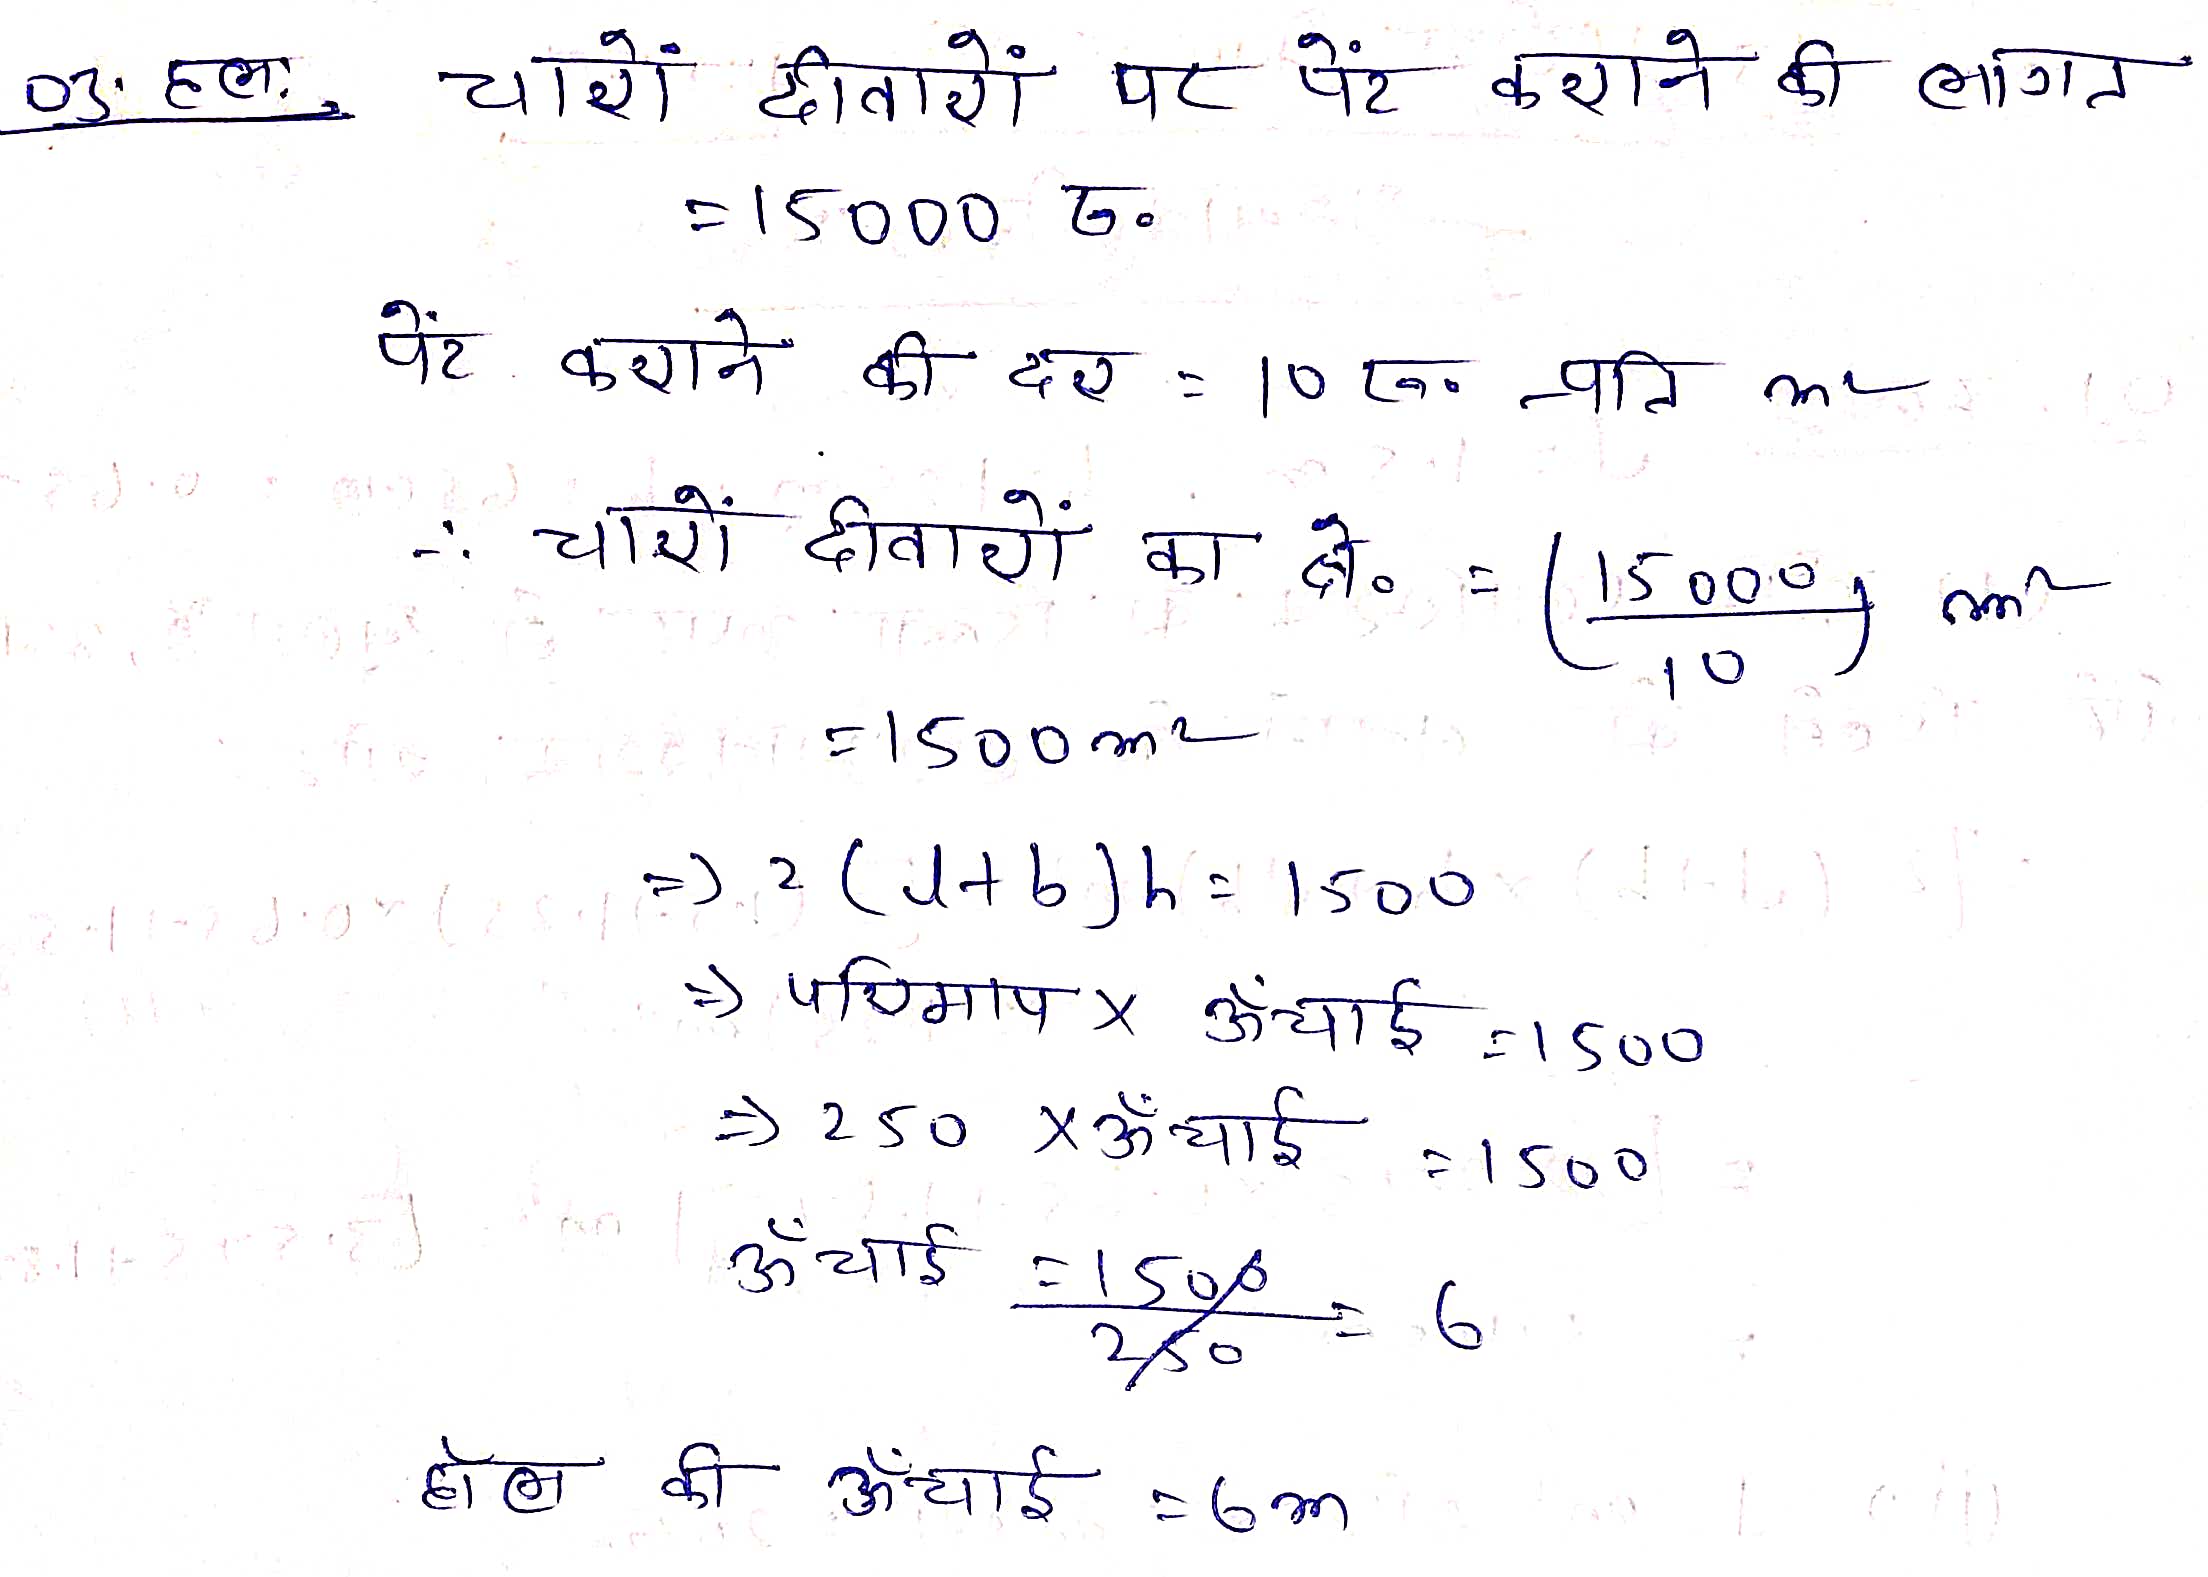 03. हल:, चारों दीवारों पर पेंट कराने की लागत
=15000 रु०
पेंट कराने की दर = 10 रु० प्रति m²
∴ चारों दीवारों का क्षे० = (15000/10) m²
=1500 m²
=> 2 (l+b)h = 1500
=> परिमाप x ऊँचाई =1500
=> 250 x ऊँचाई =1500
ऊँचाई =1500/250 = 6
हॉल की ऊँचाई =6m